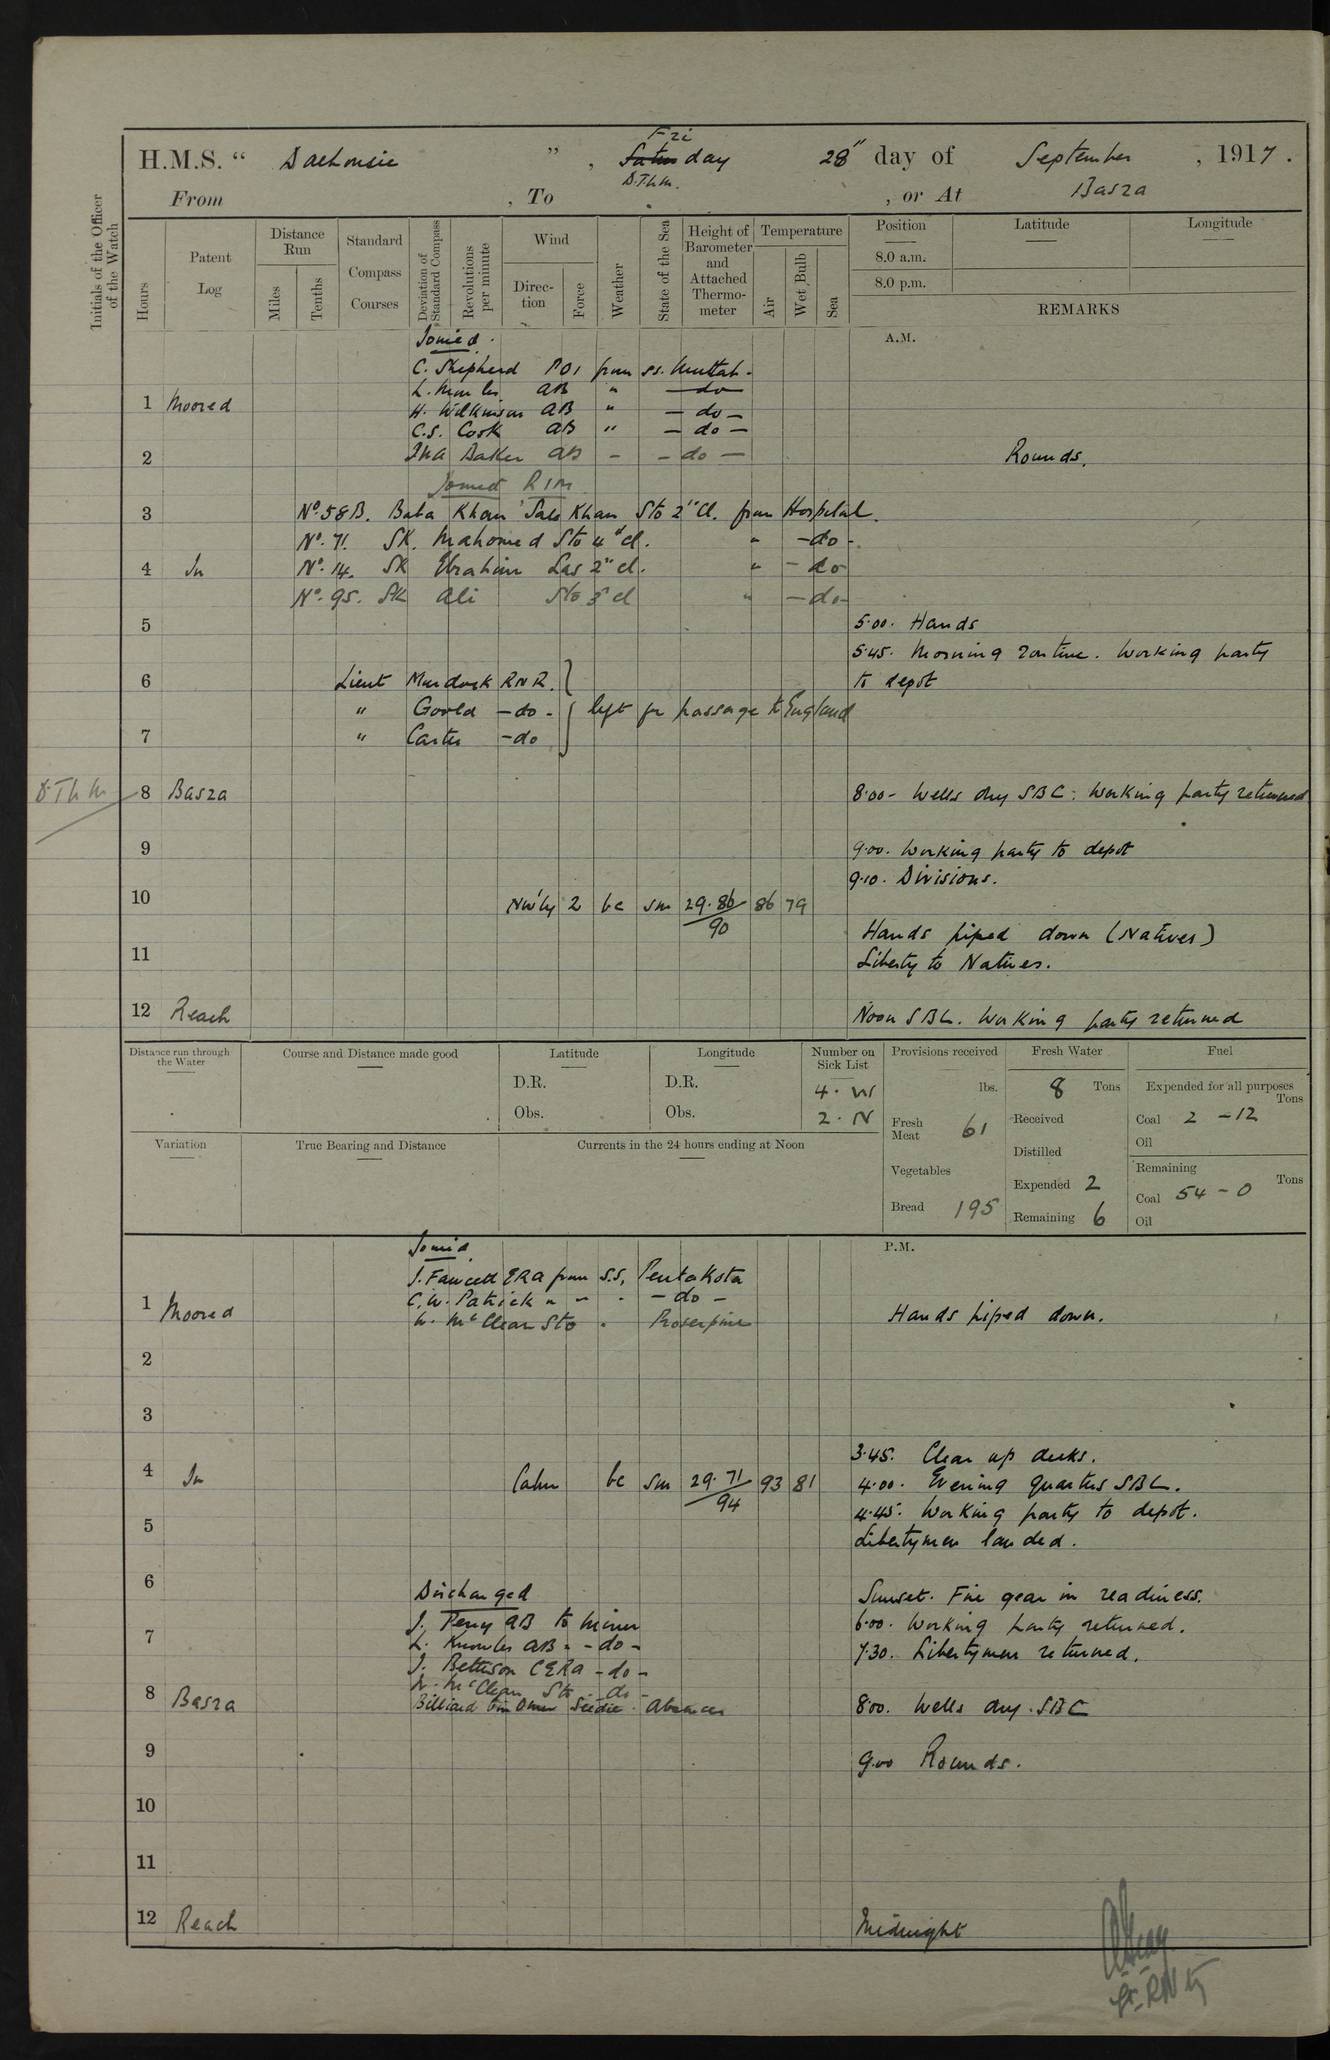 Fri
H.M.S. “ Dalhousie ” , Satur day 28" day of September , 1917 .
D.T.h.M.
From , To , or At Basra
Initials of the Officer of the Watch
Hours
Patent Log
Distance Run
Miles
Tenths
Standard Compass Courses
Deviation of Standard Compass
Revolutions per minute
Wind
Direction
Force
Weather
State of the Sea
Height of Barometer and Attached Thermometer
Temperature
Air
Wet Bulb
Sea
Position
Latitude
Longitude
8.0 a.m.
8.0 p.m.
REMARKS
A.M.
Joined.
C. Shepherd PO1 from ss. Muttah.
1 Moored
L. AB " — do —
H. Wilkinson AB " — do —
C.S. Cook AB " — do —
2 Ina Baker AB - - do — Rounds.
Joined RIM
3 No. 58B. Baba Khan Sale Khan Sto 2" Cl. from Hospital.
No. 71. SK. Mahomed Sto 4" cl. " - do -
4 In No. 14. SK Ebrahim Las 2" cl. " - do
No. 95. SK Ali Sto 3" cl " - do -
5 5.00. Hands
5.45. Morning routine. Working party
6 Lieut Murdock RNR. to depot
" Goold - do - left for passage to England
7 " Carter - do
D.T.h.M. 8 Basra 8.00 - Wells dry SBC. Working party returned
9 9.00. Working party to depot
9.10. Divisions.
10 NW'ly 2 bc sm 29.86/90 86 79
Hands piped down (Natives)
11 Liberty to Natives.
12 Reach Noon SBC. Working party returned
Distance run through the Water
Course and Distance made good
Latitude
D.R.
Obs.
Longitude
D.R.
Obs.
Number on Sick List
4. W
2. N
Provisions received
lbs.
Fresh Meat 61
Vegetables
Bread 195
Fresh Water
8 Tons
Received
Distilled
Expended 2
Remaining 6
Fuel
Expended for all purposes
Tons
Coal 2 - 12
Oil
Remaining
Tons
Coal 54 - 0
Oil
Variation
True Bearing and Distance
Currents in the 24 hours ending at Noon
P.M.
Joined
J. Fawcett ERA from S.S. Pentakota
C.W. Patrick " " " - do -
1 Moored W. McClean Sto " Proserpine Hands piped down.
2
3
3.45. Clear up decks.
4 In Calm bc sm 29.71/94 93 81 4.00. Evening quarters SBC.
4.45. Working party to depot.
5 Libertymen landed.
6 Discharged Sunset. Fire gear in readiness.
J. Perry AB to Miner 6.00. Working party returned.
7 L. Knowles AB " - do - 7.30. Libertymen returned.
J. Bettison CERA - do -
W. McClean Sto - do -
8 Basra Billiard bin Omar Seedie 8.00. Wells dry. SBC
9 9.00 Rounds.
10
11
12 Reach Midnight
Lt. RN